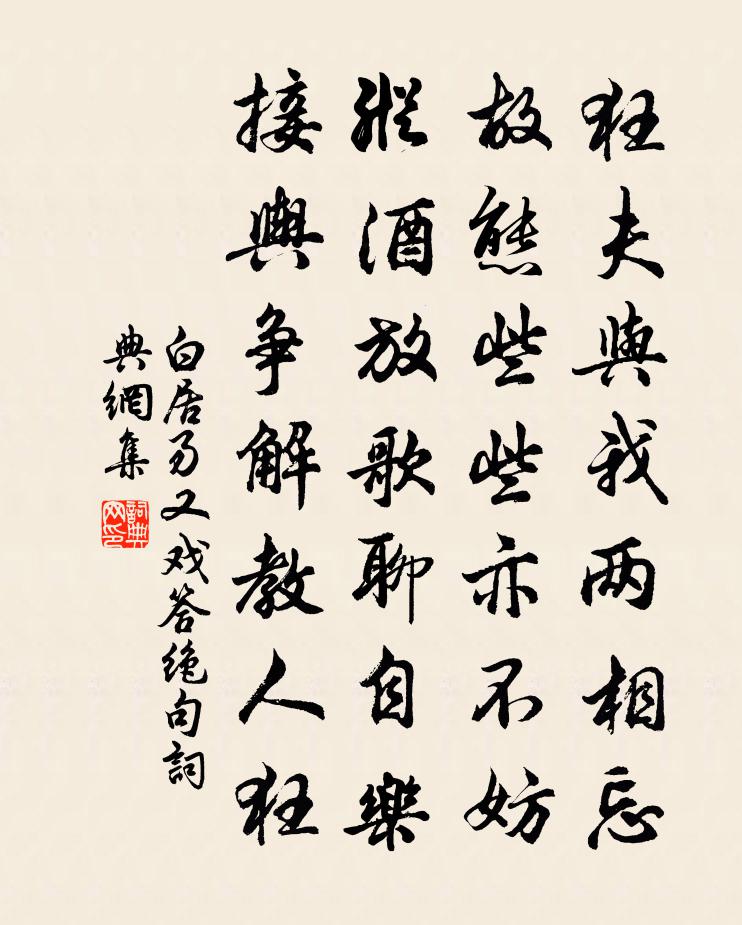 狂夫與我两相忘
故態些些亦不妨
縱酒放歌聊自樂
接輿争解教人狂
白居易又戏答绝句詞
典網集
詞典网印